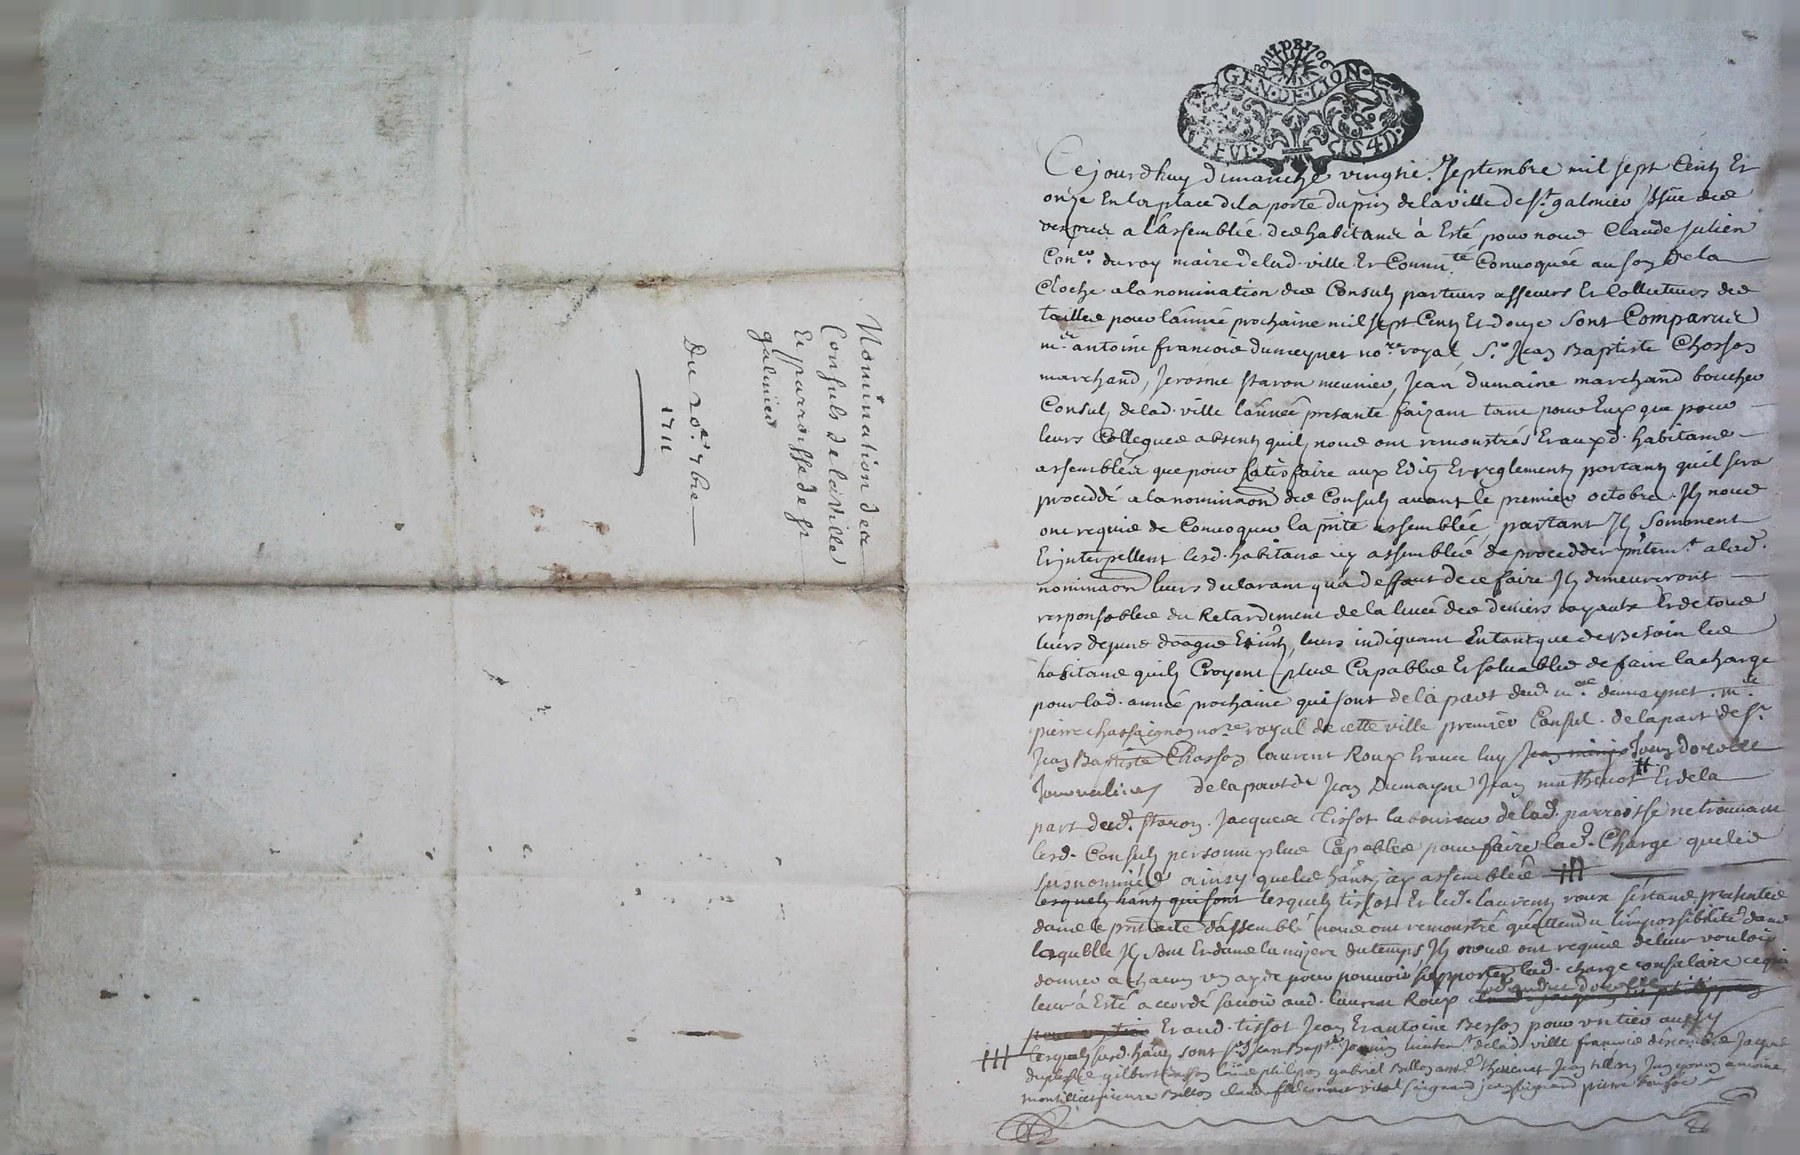 Nomination des
Consuls de la Ville
Et parroisse de St
galmier
Du 20.e 7bre
1711
GEN·DE·LION
Cejourdhuy dimanche vingtie. septembre mil sept Cents Et
onze En la place de la porte du puis de la ville de St. galmier Issüe des
vespres a l'assemblée des habitants à Esté pour nous Claude Julien
Coner. du roy maire de lad. ville Et Commté. Convoquée au son de la
Cloche a la nomination des Consuls parteurs asseeurs Et Collecteurs des
tailles pour l'année prochaine mil sept Cents Et douze sont Comparus
me. antoine francois dumeynet nore. royal Sr. Jean Baptiste Chosson
marchand, Jerosme staron meunier, Jean dumaine marchand boucher
Consuls de lad. ville l'année presante faizant tant pour Eux que pour
leurs Collegues absents quils nous ont remonstrés Et auxd. habitans
assemblés que pour satisfaire aux Edits Et reglements portants quil sera
proceddé a la nominaon des Consuls avant le premier octobre. Ils nous
ont requis de Convoquer la pnte assemblée, partant Ils somment
Et interpellent lesd. habitans icy assemblés de procedder pntemt. a lad.
nominaon leurs declarant qu'a deffaut de ce faire Ils demeureront
responsables du Retardement de la levée des deniers royaulx Et de tous
leurs depans leurs indiquant En tant que de Besoin les
habitans quils Croyent plus Capables Et solvables de faire la charge
pour lad. année prochaine qui sont de la part dud. me. dumeynet me.
pierre chassaignon nore royal de cette ville premier Consul. de la part de Sr.
Jean Baptiste Chosson laurent Roux Et avec luy
de la part de Jean Dumayne Jean mathevot # Et de la
part dud. staron. Jacques tissot laboureur de lad. parroisse ne trouvant
lesd. Consuls personne plus Capables pour faire lad. Charge que les
susnommés ainsy que les hants icy assemblés
lesquels hants qui sont lesquels tissot Et led. laurent roux s'estans presentés
dans le pnt acte d'assemblé nous ont remonstré qu'attendu l'impossibilité dans
laquelle Ils sont Et dans la mizere du temps Ils nous ont requis de leur vouloir
donner a chacun un ayde pour pouvoir supporter lad. charge consulaire ce qui
leur à Esté accordé scavoir aud. laurent Roux
Et aud. tissot Jean Et antoine Besson pour un tier aussy
lesquels susd. hants sont Sr. Jean Bapte. lieutent. de lad. ville francois Jacques
duplessis gilbert philipon gabriel Billon
Billon claude pierre